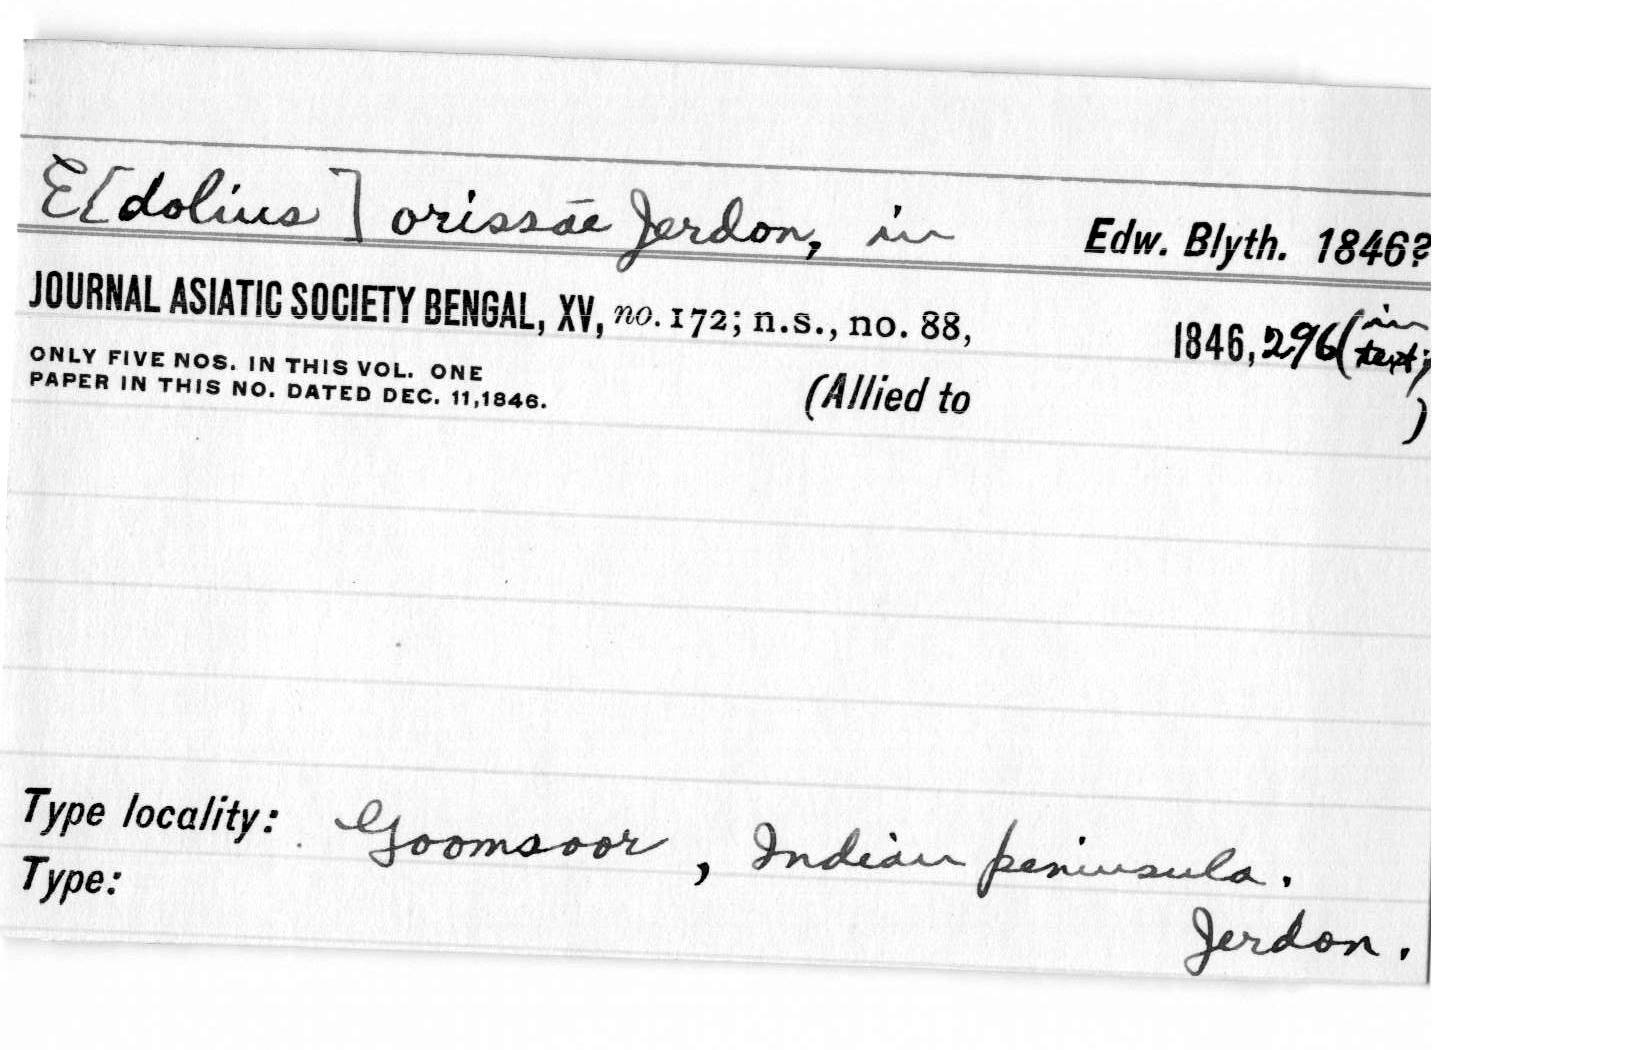 E[dolius] orissae Jerdon, in Edw. Blyth. 1846?
JOURNAL ASIATIC SOCIETY BENGAL, XV, no. 172; n.s., no. 88, 1846, 296 (in text;
ONLY FIVE NOS. IN THIS VOL. ONE
PAPER IN THIS NO. DATED DEC. 11, 1846.
(Allied to )
Type locality: Goomsoor, Indian peninsula.
Type:
Jerdon.